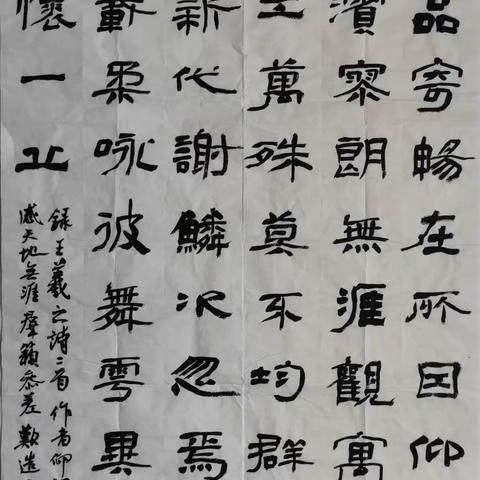 品寄暢在所因仰
濱寥朗無涯觀寓
工萬殊莫不均群
新代謝鱗次忽焉
載柔詠彼舞雩異
懷一丘
錄王羲之詩二首作者仰
感天地無涯羣籟參差歎造